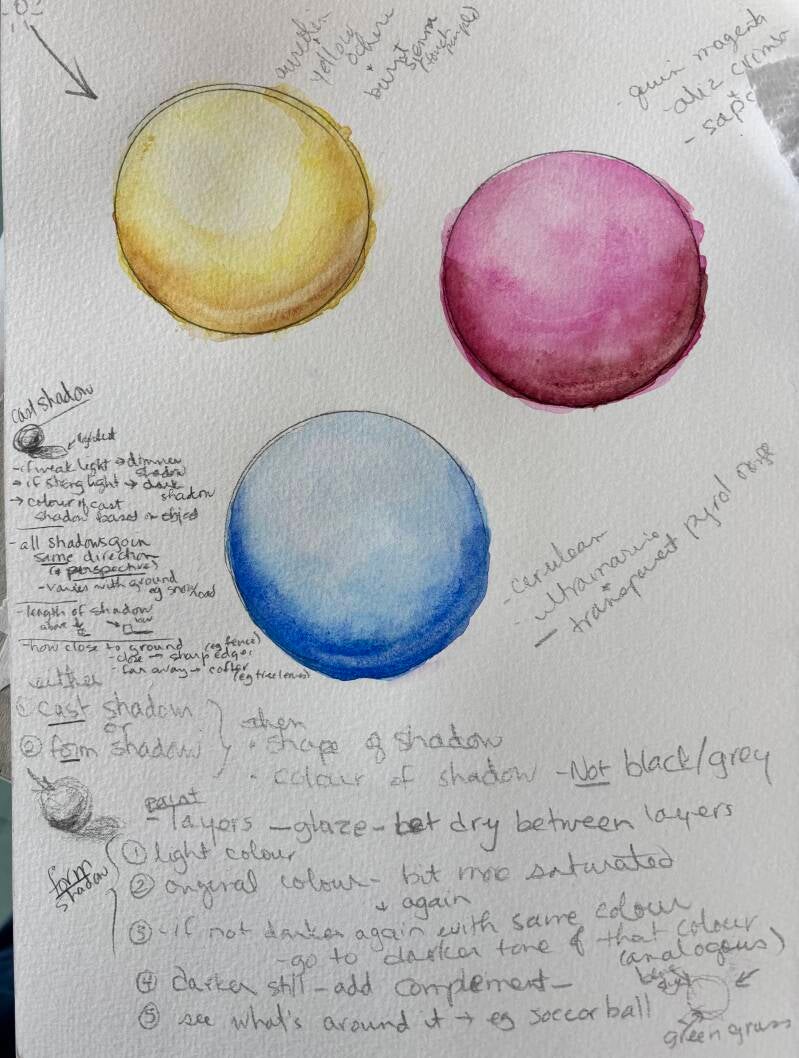 aureolin
yellow
ochre
+
burnt
sienna
(touch
purple)
- quin magenta
- aliz crims
+
- sap
cast shadow
- if weak light → dimmer
shadow
→ if strong light → dark
shadow
→ colour of cast
shadow based on object
- all shadows go in
same direction
(+ perspective)
- varies with ground
eg snow/road
- length of shadow
above
low
- how close to ground (eg fence)
- close → sharp edge
- far away → softer (eg tree leaves)
- cerulean
- ultramarine
+
- transparent Pyrol orange
either
① cast shadow
or
② form shadow
then
• shape of shadow
• colour of shadow - Not black/grey
paint
- layers - glaze - let dry between layers
form
shadow
① light colour
② origeral colour - bit moe saturated
+ again
③ - if not darker again with same colour
- go to darker tone of that colour
(analogous)
④ darker still - add complement -
⑤ see what's around it → eg soccorball
green grass